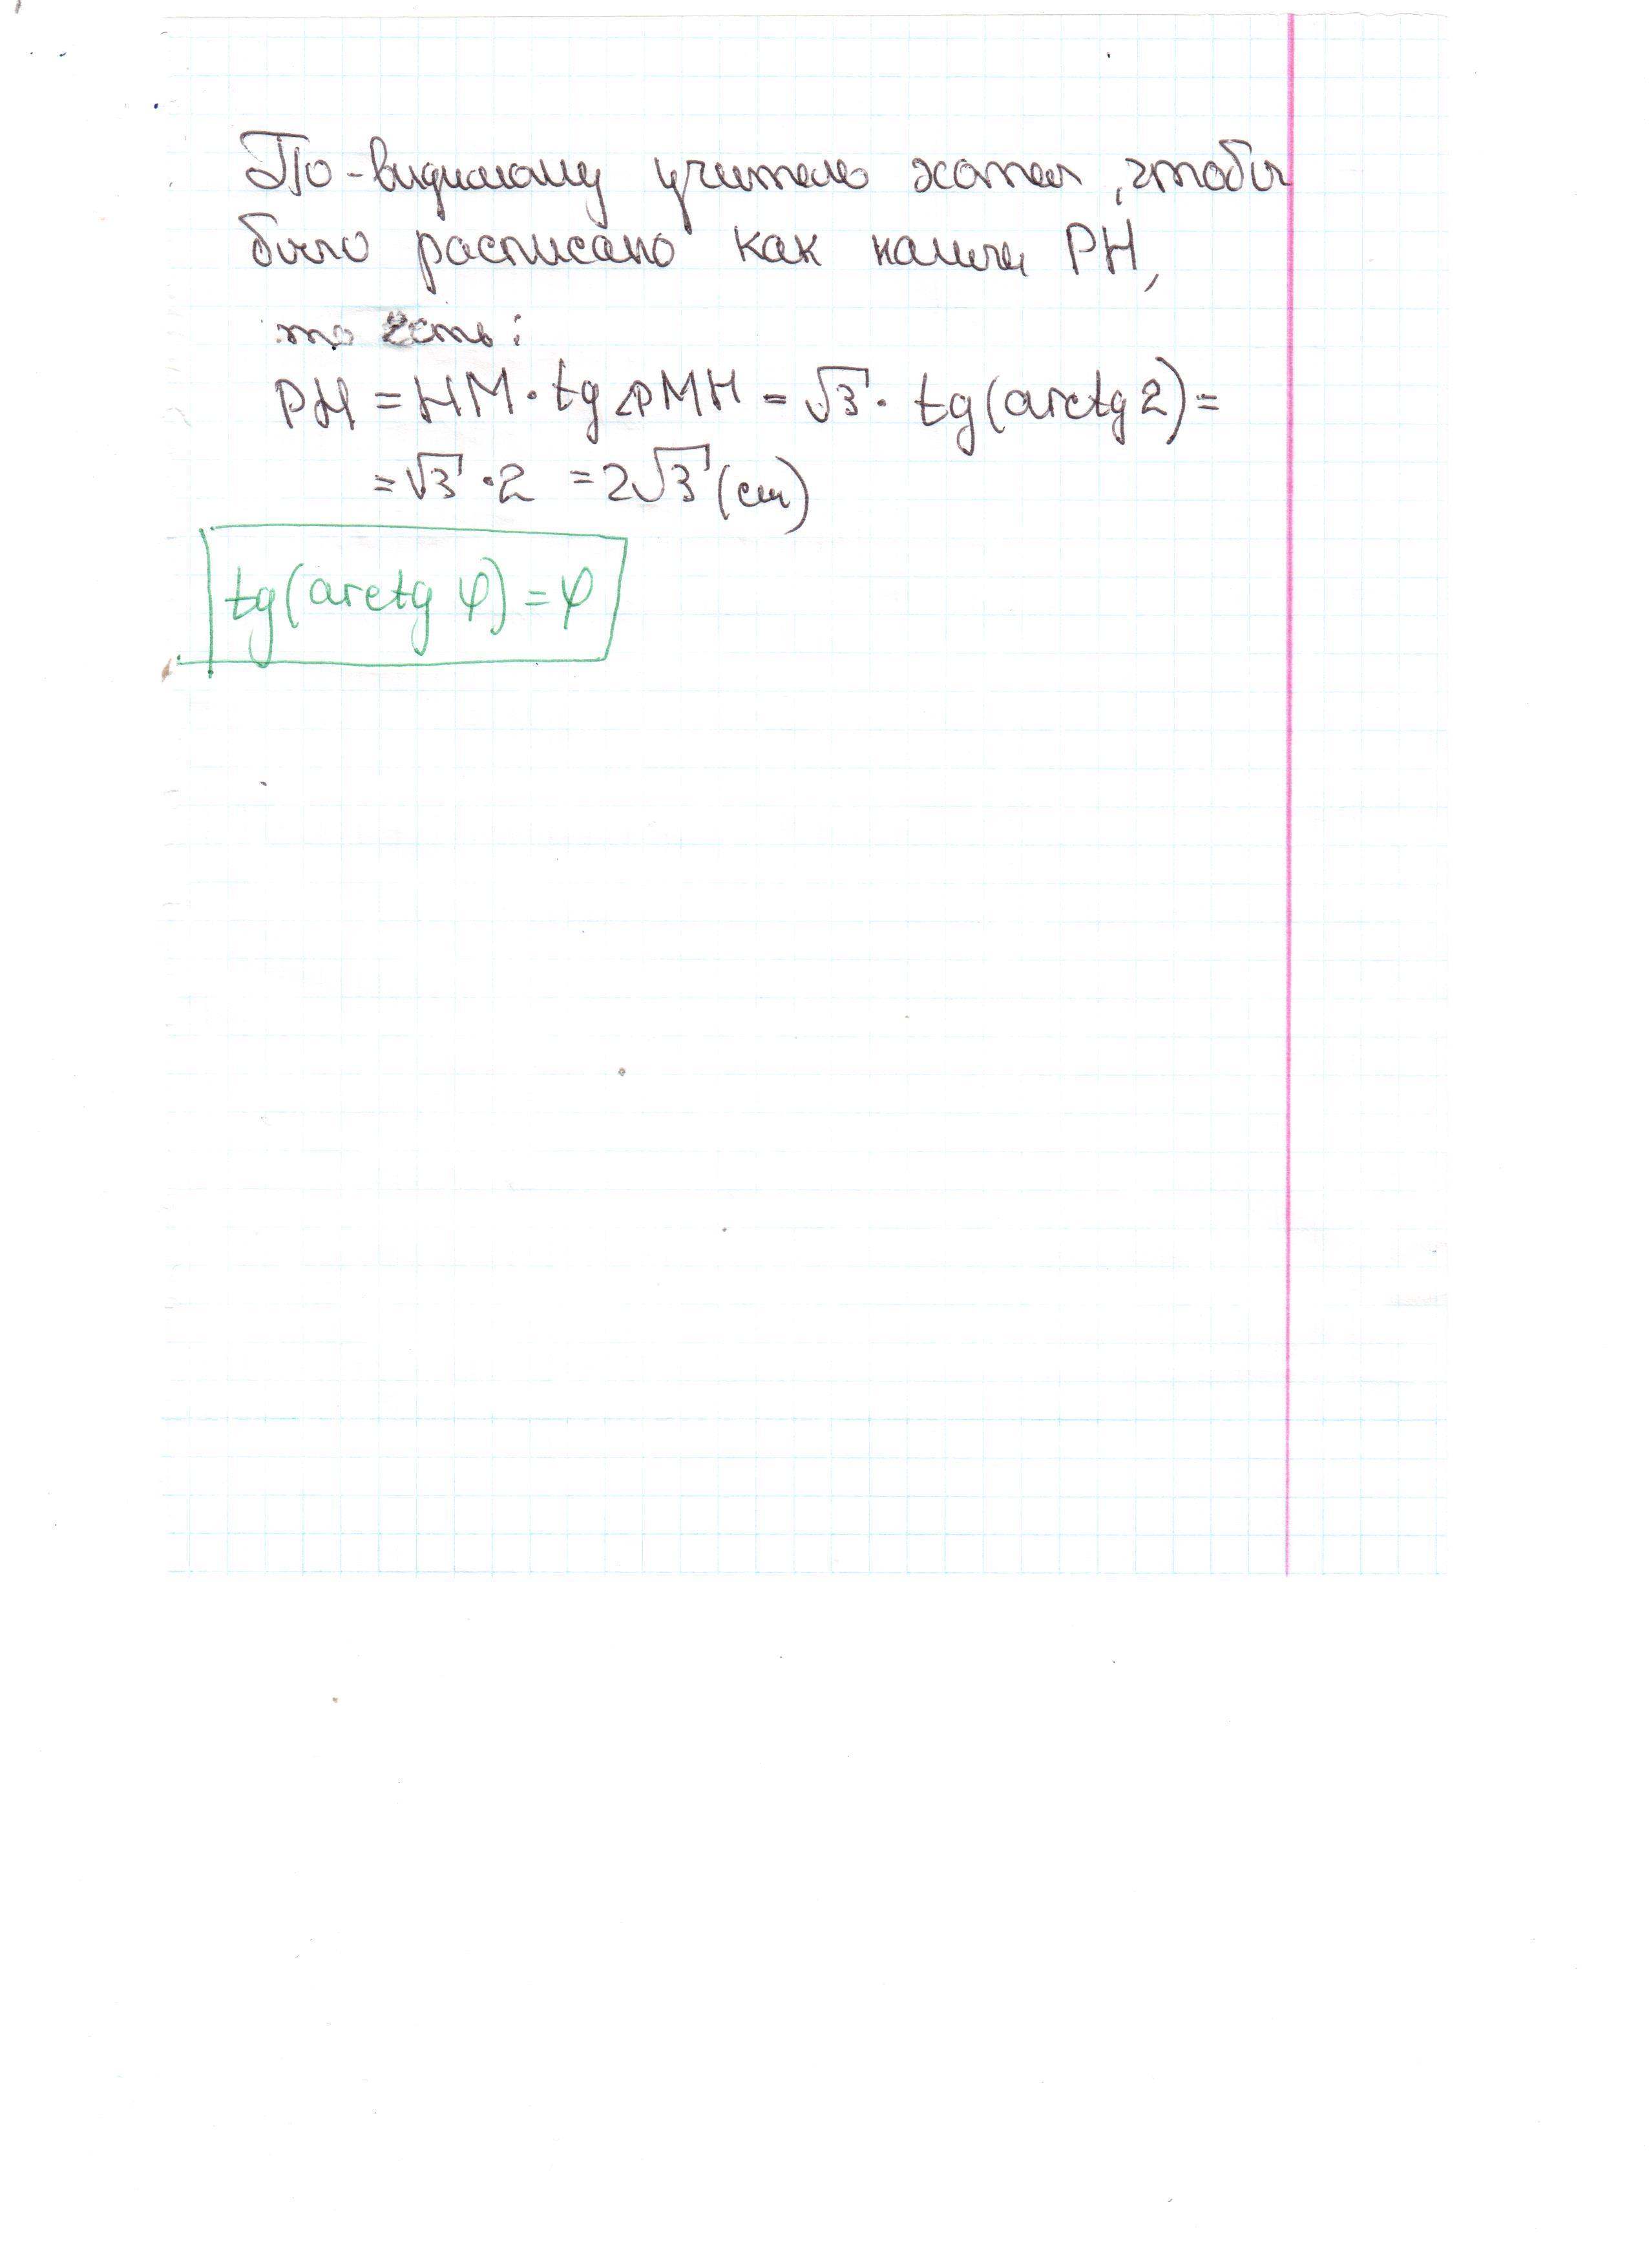 По-видимому учитель хотел, чтобы
было расписано как нашли PH,
то есть:
PH = HM · tg ∠PMH = √3 · tg(arctg 2) =
= √3 · 2 = 2√3 (см)
tg(arctg φ) = φ